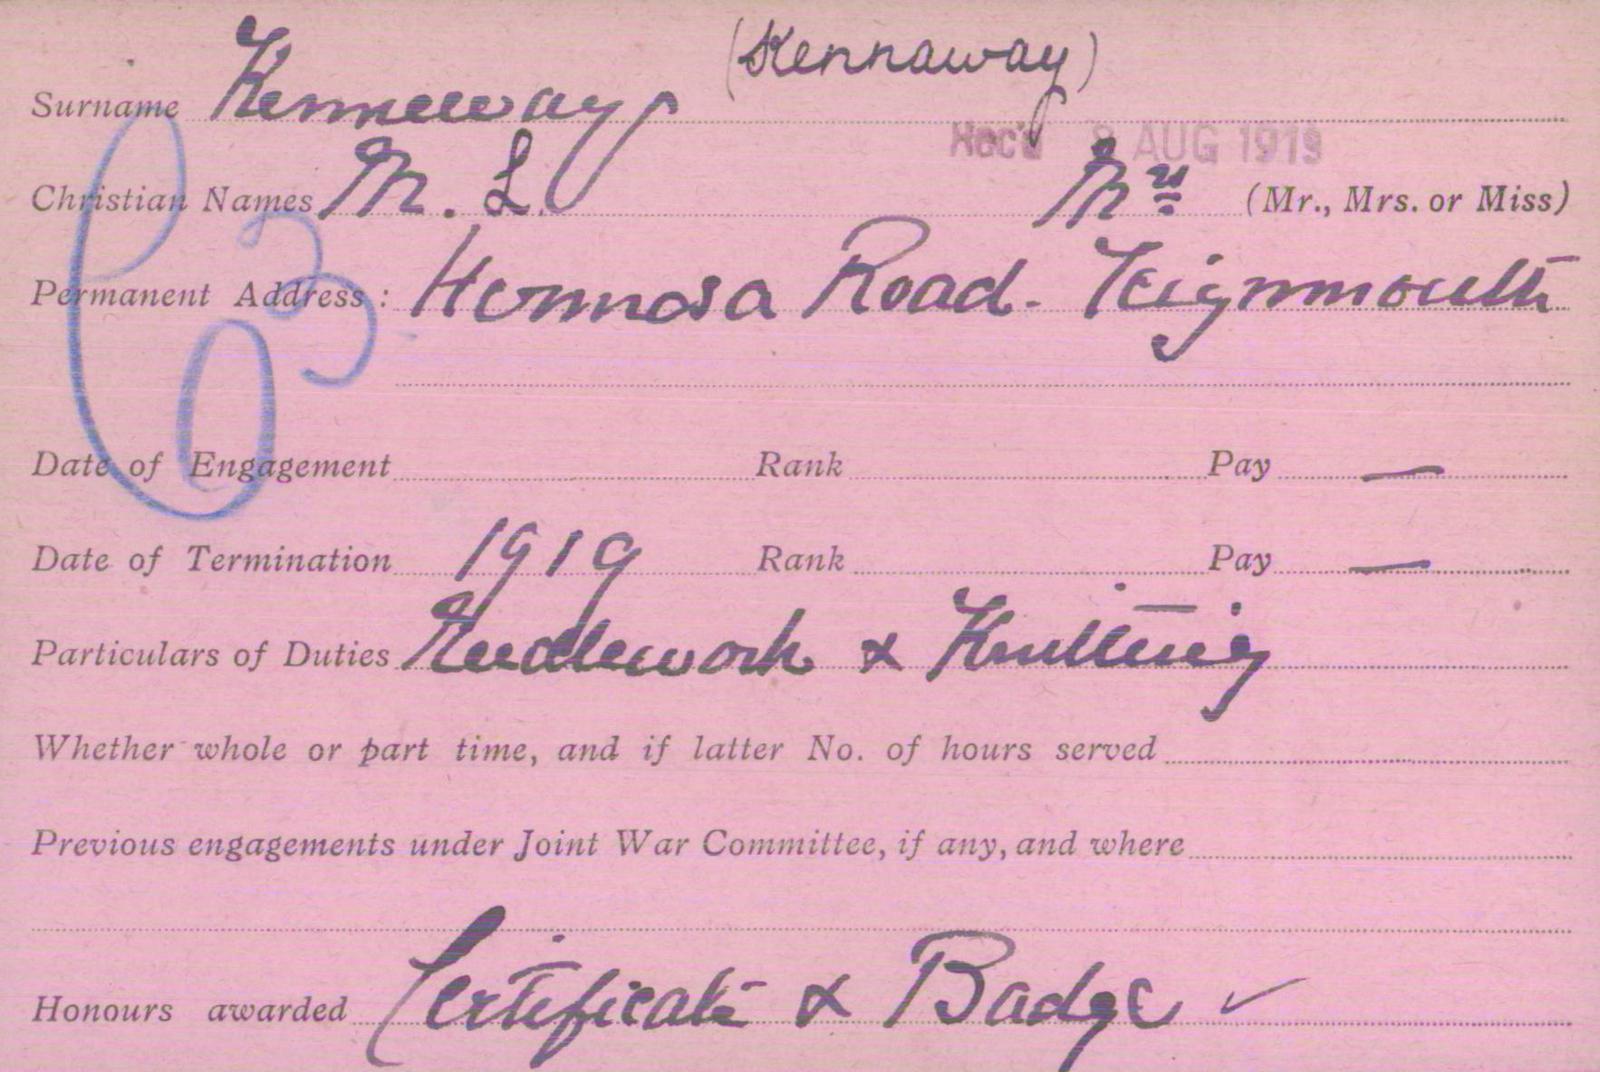 (Kennaway)
Surname Kenneway
Rec'd 8 AUG 1919
Christian Names M. L. Mrs (Mr., Mrs. or Miss)
Permanent Address: Hermosa Road. Teignmouth
Date of Engagement Rank Pay —
Date of Termination 1919 Rank Pay —
Particulars of Duties Needlework & Knitting
Whether whole or part time, and if latter No. of hours served
Previous engagements under Joint War Committee, if any, and where
Honours awarded Certificate & Badge ✓